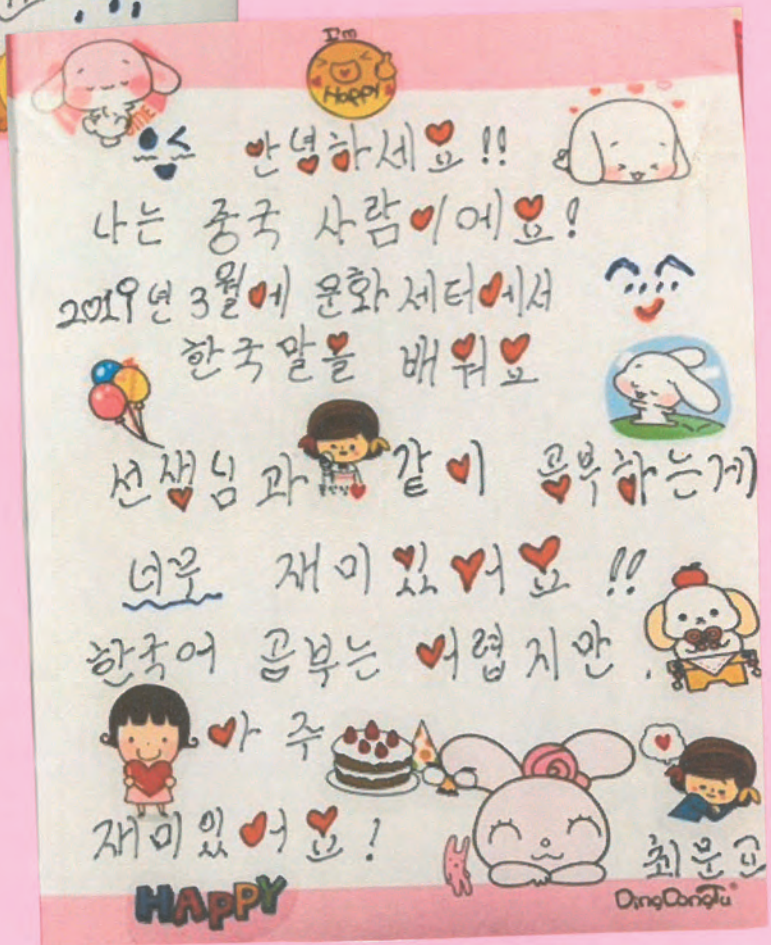 I'm
Happy
안녕하세요!!
나는 중국 사람이에요!
2019년 3월에 문화 세터에서
한국말을 배워요
선생님과 같이 공부하는게
너무 재미있어요!!
한국어 공부는 어렵지만.
아주
재미있어요!
HAPPY
DingDongTu